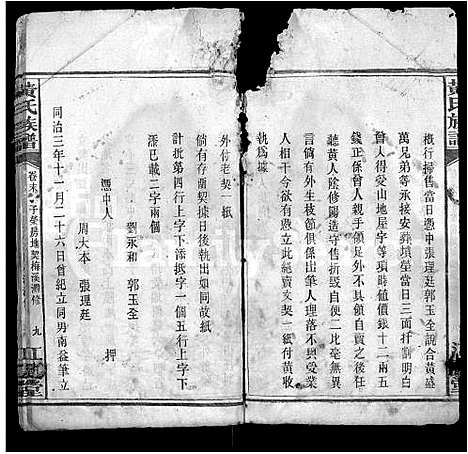 黃氏族譜
概行掃售當日憑中張理廷郭玉全說合黃盛
萬兄弟等永接安葬墳塋當日三面言定時值
曾人得受山地屋宇等項時值價銀十二兩五
錢正係曾人親手領足外不具領其價係曾人
聽黃人陰修陽造守售折毀自便二比毫無異
言倘有外生枝節俱係出筆人理落不與受業
人相干今欲有憑立此絕賣文契一紙付黃收
執爲據
外付老契一紙
倘有存蘭契據日後執出如同故紙
計批第四行上字下添掀字一個五行上字下
添已載二字兩個
憑中人
劉永和 郭玉全
周大本 張理廷
押
同治三年十一月二十六日曾紀立同男南益筆立
黃氏族譜
卷末 子榮房地契梅溪濃修
九